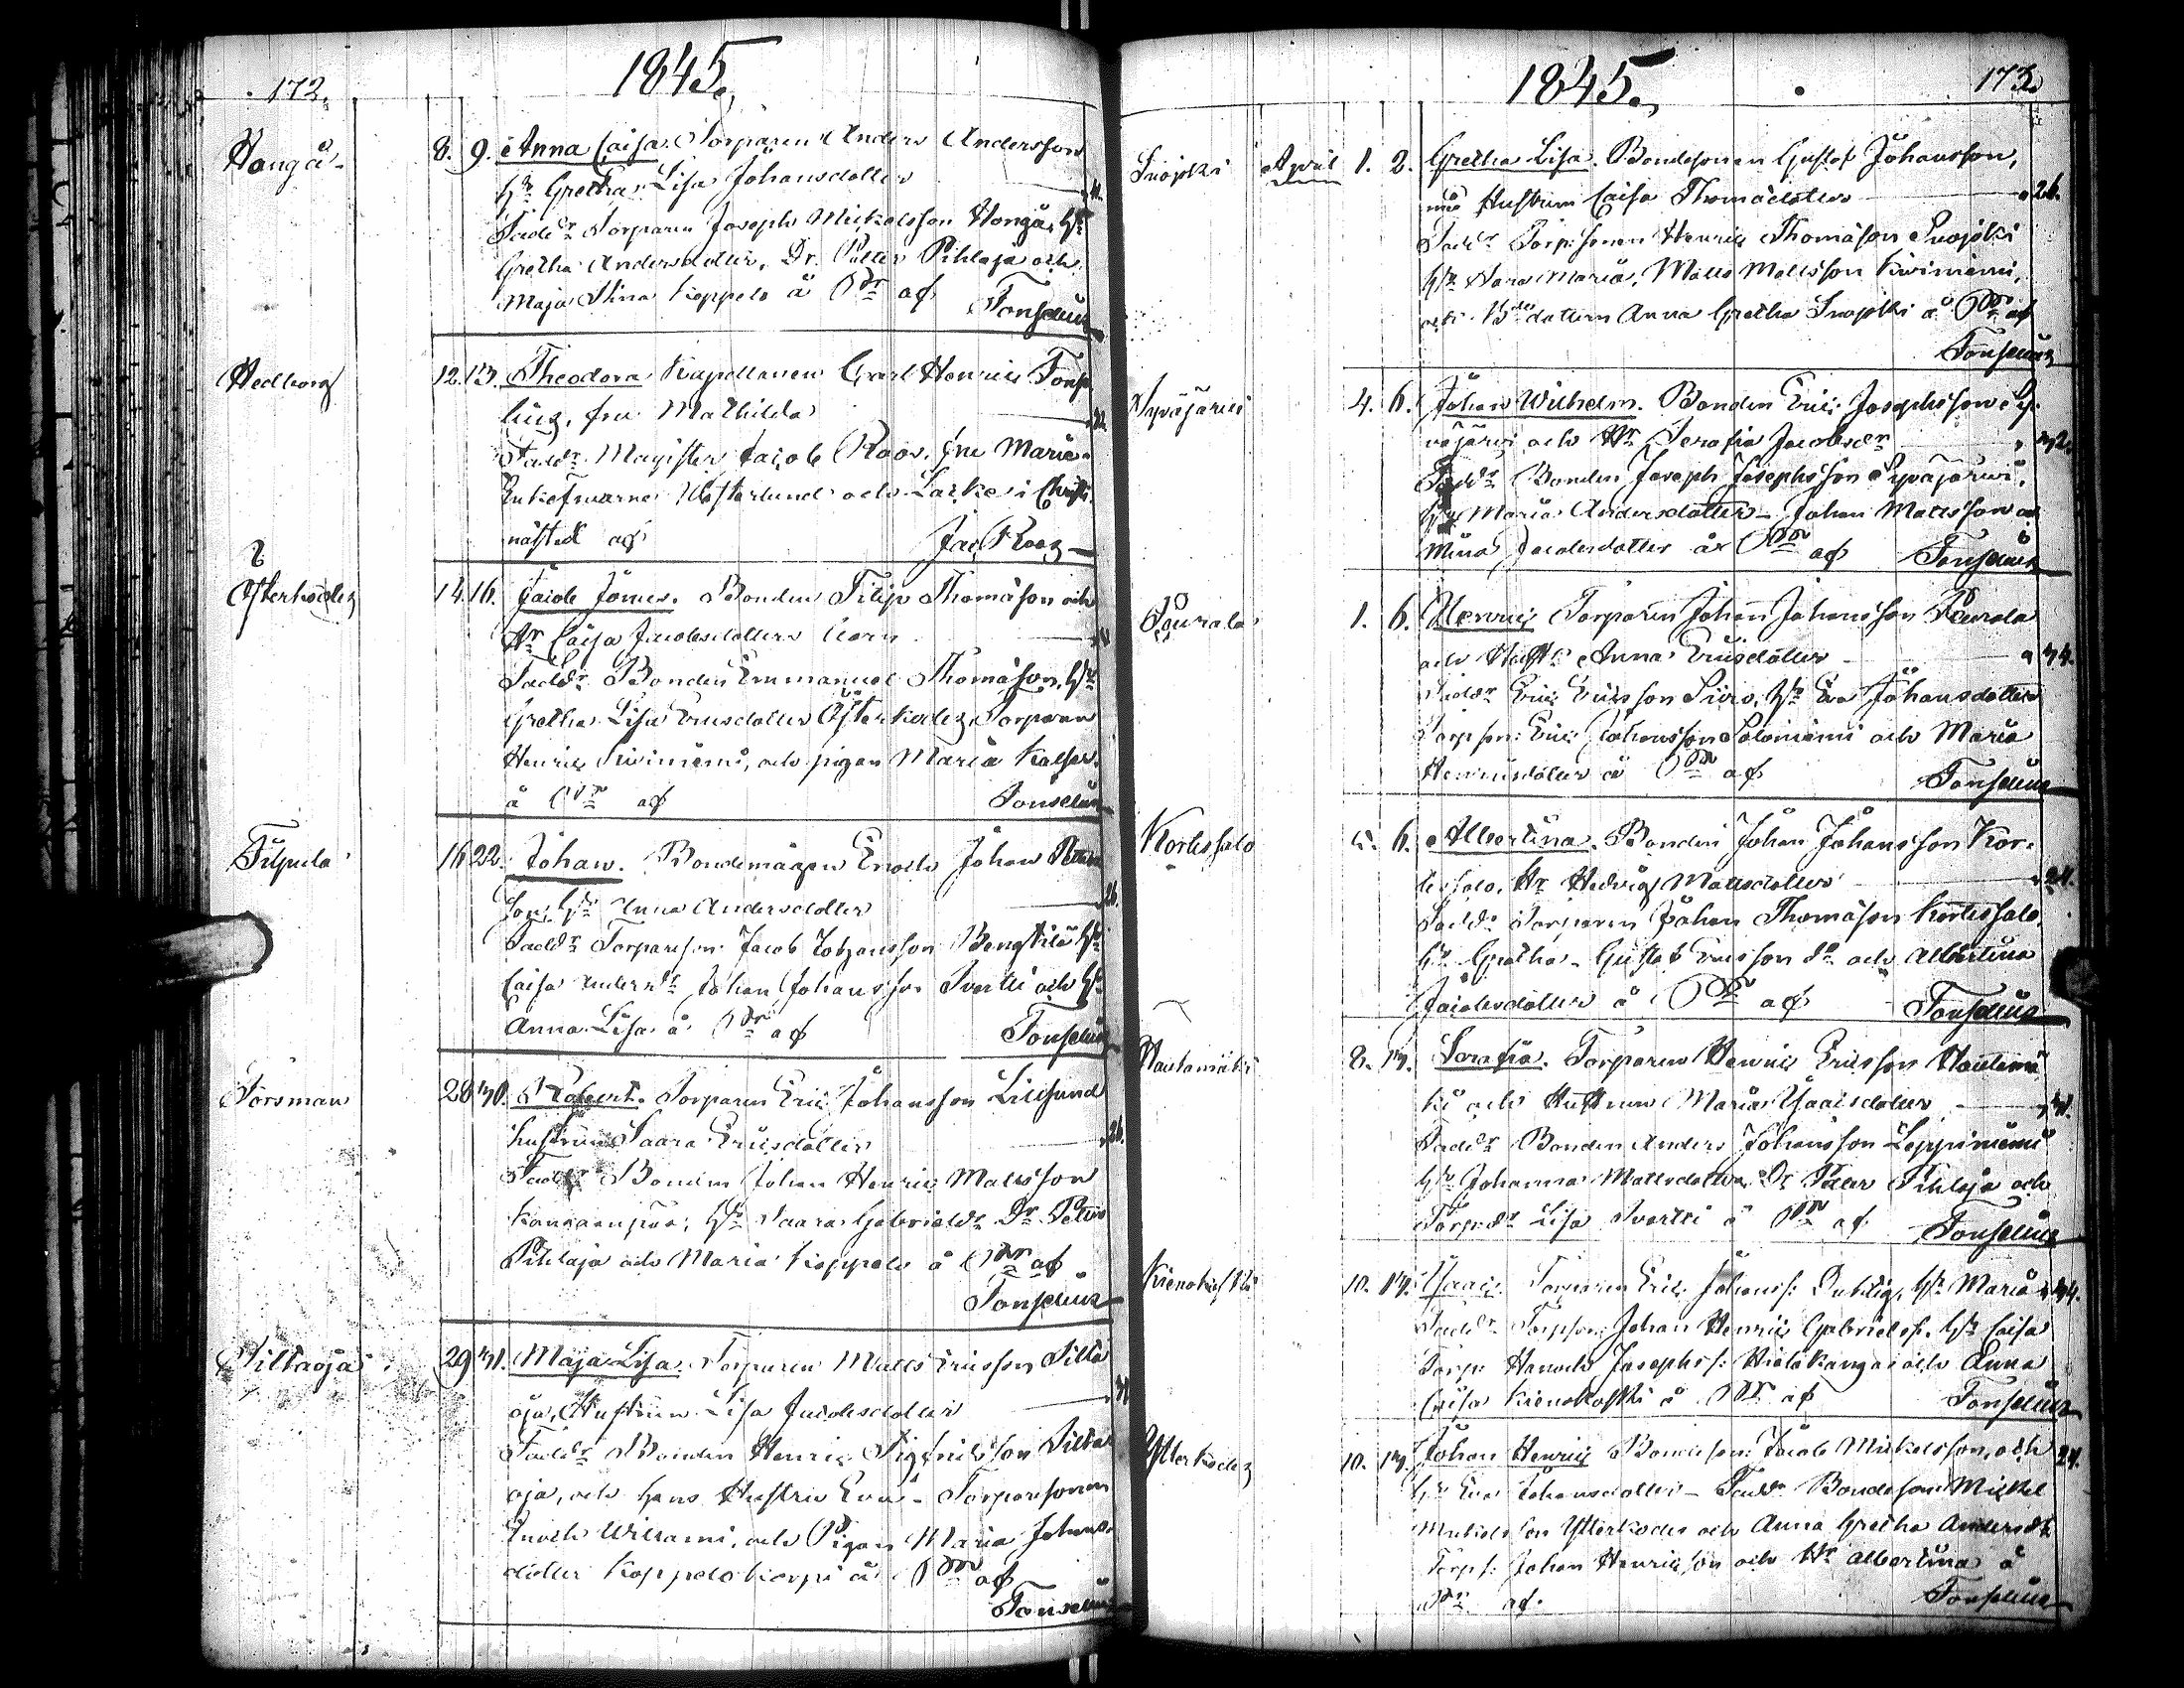 172.
1845.
Hongå
8. 9. Anna Caisa. Torparen Anders Andersson
Hu Gretha Lisa Johansdotter
Fadd:r Torparen Joseph Mickelsson Hongå, Hu
Gretha Andersdotter, Dr. Petter Pihlaja och
Maja Stina Koppelo å Or af
Tonselius
Hedborg
12. 13. Theodora. Kapellanen Carl Henric Tonse
lius, fru Mathilda
Fadd:r Magister Jacob Roos, fru Maria
Enkefruarne Westerlund och Lacke i Christi
nästad af Jac. Roos
Österkodez
14. 16. Jacob Jönner. Bonden Filip Thomasson och
Hr Caisa Jacobsdotter
Fadd:r Bonden Emmanuel Thomasson, Hu
Gretha Lisa Ericsdotter Österkodez, Torparen
Henric Kiviniemi, och pigan Maria
å Or af Tonselius
Filpula
16 22. Johan. Bondemågen Enoch Johan
son, Hu Anna Andersdotter 26.
Fadd:r Torparson Jacob Johansson Bengtilä Hu
Caisa Andersdr Johan Johansson Svartti och Hu
Anna Lisa å Or af Tonselius
Forsman
28 30. Robert. Torparen Eric Johansson Lillsund
hustrun Saara Ericsdotter 26.
Fadd:r Bonden Johan Henric Mattsson
Kangaanpää, Hu Saara Gabrielsdr Dr Petter
Pihlaja och Maria Koppelo å Or af
Tonselius
Siltaoja
29 31. Maja Lisa. Torparen Matts Ericsson Silta
oja, Hustrun Lisa Jacobsdotter
Fadd:r Bonden Henric Sigfridsson Silta
oja, och hans Hustru Eva - Torparsonen
Enoch Willami, och Pigan Maria Johans
dotter Koppelokorpi å Or af
Tonselius
1845.
173.
Suojoki
April 1. 2. Gretha Lisa. Bondesonen Gustaf Johansson,
Hustrun Caisa Thomædotter 26.
Fadd:r Torp:sonen Henric Thomasson Suojoki
Hu Hans Maria, Matts Mattsson Kiviniemi,
och B:dottern Anna Gretha Suojoki å Or af
Tonselius
Sypäjärvi
4. 6. Johan Wilhelm. Bonden Eric Josephsson Sy
päjärvi och Hr Serafia Jacobsdr 32.
Fadd:r Bonden Joseph Josephsson Sypäjärvi,
Hu Maria Andersdotter - Johan Mattsson och
Mina Jacobsdotter å Or af Tonselius
Peurala
1. 6. Henric Torparen Johan Johansson Peurala
och Hust: Anna Ericsdotter 34.
Fadd:r Eric Ericsson Siiro, Hu Eva Johansdotter
Torpson: Eric Johansson Saloniemi och Maria
Henricsdotter å Or af Tonselius
Kortessalo
5. 6. Albertina. Bonden Johan Johansson Kor
tessalo, Hr Hedvig Mattsdotter 21.
Fadd:r Torparen Johan Thomasson Kortessalo,
Hu Gretha - Gustaf Ericsson do och Albertina
Jacobsdotter å Or af Tonselius
Hautamäki
8. 13. Serafia. Torparen Henric Ericsson Hautamä
ki och Hustrun Maria Isaacsdotter
Fadd:r Bonden Anders Johansson Leppiniemi
Hu Johanna Mattsdotter Dr Petter Pihlaja och
Torpdr Lisa Svartti å Or af Tonselius
Kienokoski
10. 13. Isaac. Torparen Eric Johanss: Duktig, Hu Maria 34.
Fadd:r Torpson: Johan Henric Gabrielss. Hu Caisa
Torp: Hanoch Josephss: Hietakangas och Anna
Caisa Kienokoski å Or af Tonselius
Ytterkodez
10. 13. Johan Henric Bondeson: Jacob Mickelsson, och 21.
Hu Eva Johansdotter - Fadd:r Bondeson Mickel
Mickelsson Ytterkodez och Anna Gretha Andersdr
Torps: Johan Henricsson och Hr Albertina å
Or af. Tonselius